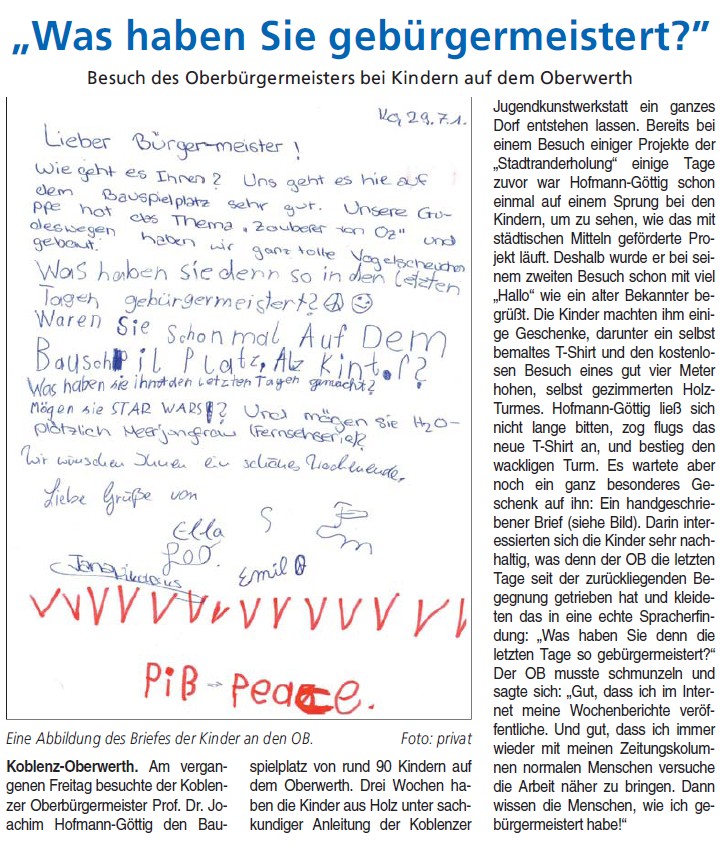 „Was haben Sie gebürgermeistert?”
Besuch des Oberbürgermeisters bei Kindern auf dem Oberwerth
29.7.1.
Lieber Bürger-meister!
Wie geht es Ihnen? Uns geht es hie auf
dem Bauspielplatz sehr gut. Unsere Gru-
ppe hat das Thema „Zauberer von Oz“ und
deswegen haben wir ganz tolle Vogelscheuchen
gebaut.
Was haben Sie denn so in den letzten
Tagen gebürgermeistert?
Waren Sie schonmal Auf Dem
Bauschpil Platz, Alz Kint.?
Was haben sie in den Letzten Tagen gemacht?
Mögen sie STAR WARS? Und mögen sie H2O-
plötzlich Meerjungfrau (Fernsehserie)?
Wir wünschen Ihnen ein schönes Wochenende.
Liebe Grüße von
Ella S
Emil
PiB - Peace.
Eine Abbildung des Briefes der Kinder an den OB. Foto: privat
Koblenz-Oberwerth. Am vergan-
genen Freitag besuchte der Koblen-
zer Oberbürgermeister Prof. Dr. Jo-
achim Hofmann-Göttig den Bau-
spielplatz von rund 90 Kindern auf
dem Oberwerth. Drei Wochen ha-
ben die Kinder aus Holz unter sach-
kundiger Anleitung der Koblenzer
Jugendkunstwerkstatt ein ganzes
Dorf entstehen lassen. Bereits bei
einem Besuch einiger Projekte der
„Stadtranderholung“ einige Tage
zuvor war Hofmann-Göttig schon
einmal auf einem Sprung bei den
Kindern, um zu sehen, wie das mit
städtischen Mitteln geförderte Pro-
jekt läuft. Deshalb wurde er bei sei-
nem zweiten Besuch schon mit viel
„Hallo“ wie ein alter Bekannter be-
grüßt. Die Kinder machten ihm eini-
ge Geschenke, darunter ein selbst
bemaltes T-Shirt und den kostenlo-
sen Besuch eines gut vier Meter
hohen, selbst gezimmerten Holz-
Turmes. Hofmann-Göttig ließ sich
nicht lange bitten, zog flugs das
neue T-Shirt an, und bestieg den
wackligen Turm. Es wartete aber
noch ein ganz besonderes Ge-
schenk auf ihn: Ein handgeschrie-
bener Brief (siehe Bild). Darin inter-
essierten sich die Kinder sehr nach-
haltig, was denn der OB die letzten
Tage seit der zurückliegenden Be-
gegnung getrieben hat und kleide-
ten das in eine echte Spracherfin-
dung: „Was haben Sie denn die
letzten Tage so gebürgermeistert?“
Der OB musste schmunzeln und
sagte sich: „Gut, dass ich im Inter-
net meine Wochenberichte veröf-
fentliche. Und gut, dass ich immer
wieder mit meinen Zeitungskolum-
nen normalen Menschen versuche
die Arbeit näher zu bringen. Dann
wissen die Menschen, wie ich ge-
bürgermeistert habe!“